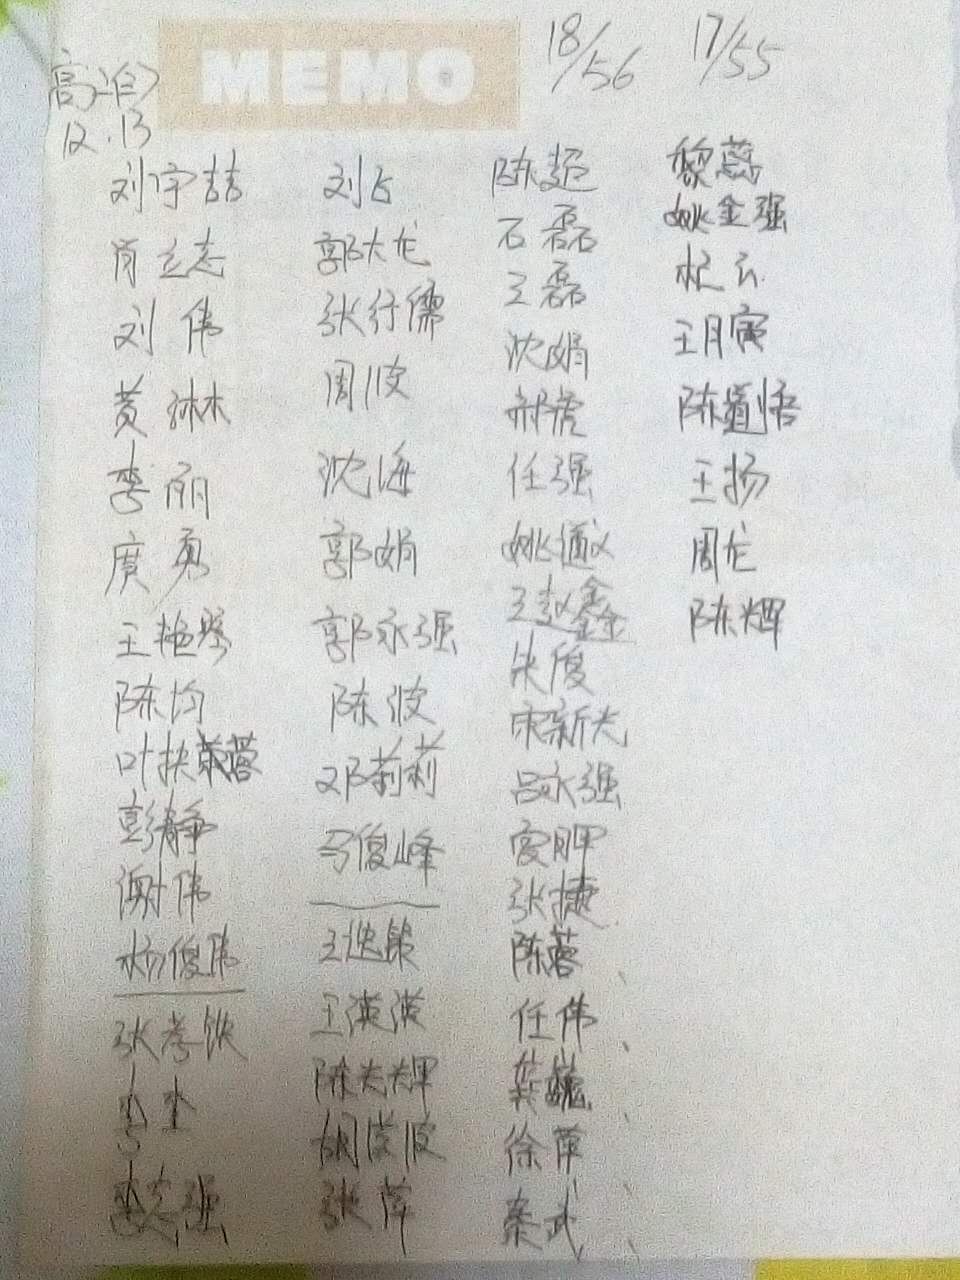 MEMO
18/56 17/55
12.13
刘宇喆
肖立志
刘伟
黄琳
李丽
庹勇
王艳琴
陈均
叶扶蓉
彭静
谢伟
杨俊伟
张孝钦
李杰
惠志强
刘占
郭大龙
张行儒
周波
沈海
郭娟
郭永强
陈波
邓莉莉
马俊峰
王
王滢滢
陈光辉
胡滢波
张萍
陈超
石磊
王磊
沈娟
郝虎
任强
姚道义
王赵鑫
朱俊
宋新光
吕永强
夏
张捷
陈蓉
任伟
龚巍
徐萍
秦武
黎蕊
姚金强
杞云
王月寅
陈道悟
王扬
周龙
陈辉